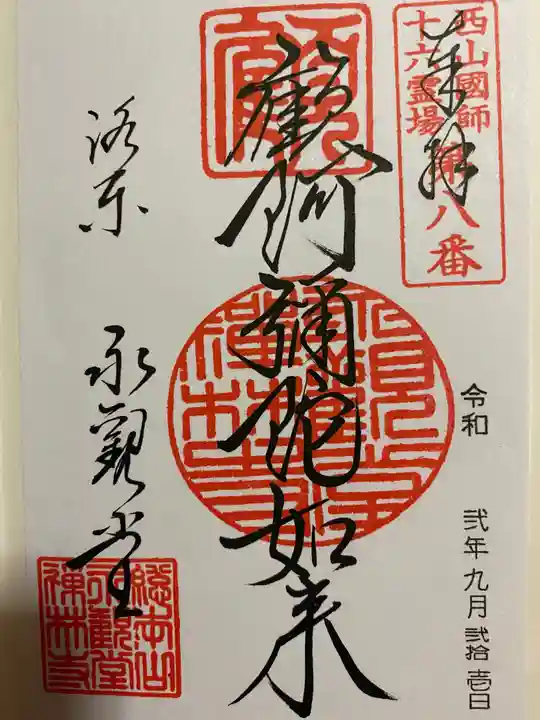 西山國師
十六霊場
第八番
奉拜
令和 弐年九月弐拾壱日
觀阿彌陀如来
洛东
永觀堂
總本山
永觀堂
禅林寺